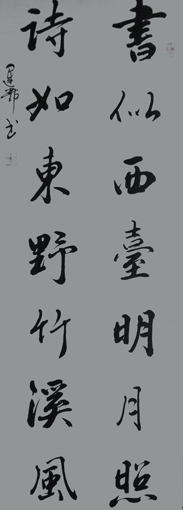 書似西臺明月照
詩如東野竹溪風